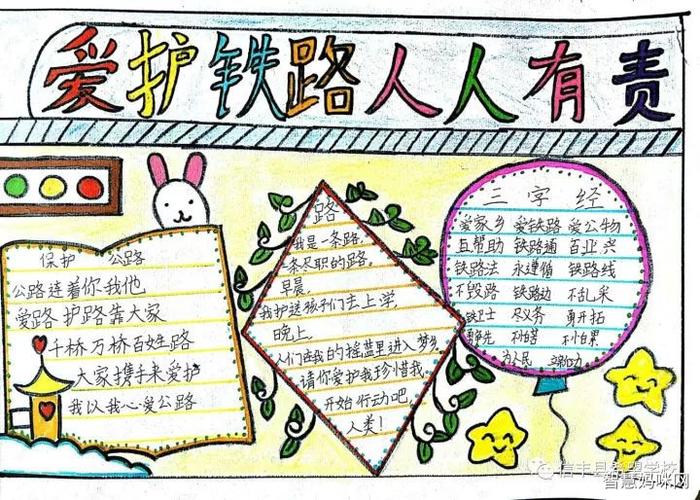 爱护铁路人人有责
保护 公路
公路连着你我他
爱路护路靠大家
千桥万桥百姓路
大家携手来爱护
我以我心爱公路
路
我是一条路,
一条尽职的路。
早晨,
我护送孩子们去上学,
晚上,
人们在我的摇篮里进入梦乡
请你爱护我珍惜我,
开始行动吧,
人类!
三字经
爱家乡 爱铁路 爱公物
互帮助 铁路通 百业兴
铁路法 永遵循 铁路线
不毁路 铁路边 不乱采
铁卫士 尽义务 勇开拓
为人民
信丰县希望学校
智慧妈咪网